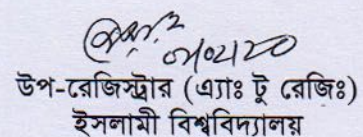 উপ-রেজিস্ট্রার (এ্যাঃ টু রেজিঃ)
ইসলামী বিশ্ববিদ্যালয়